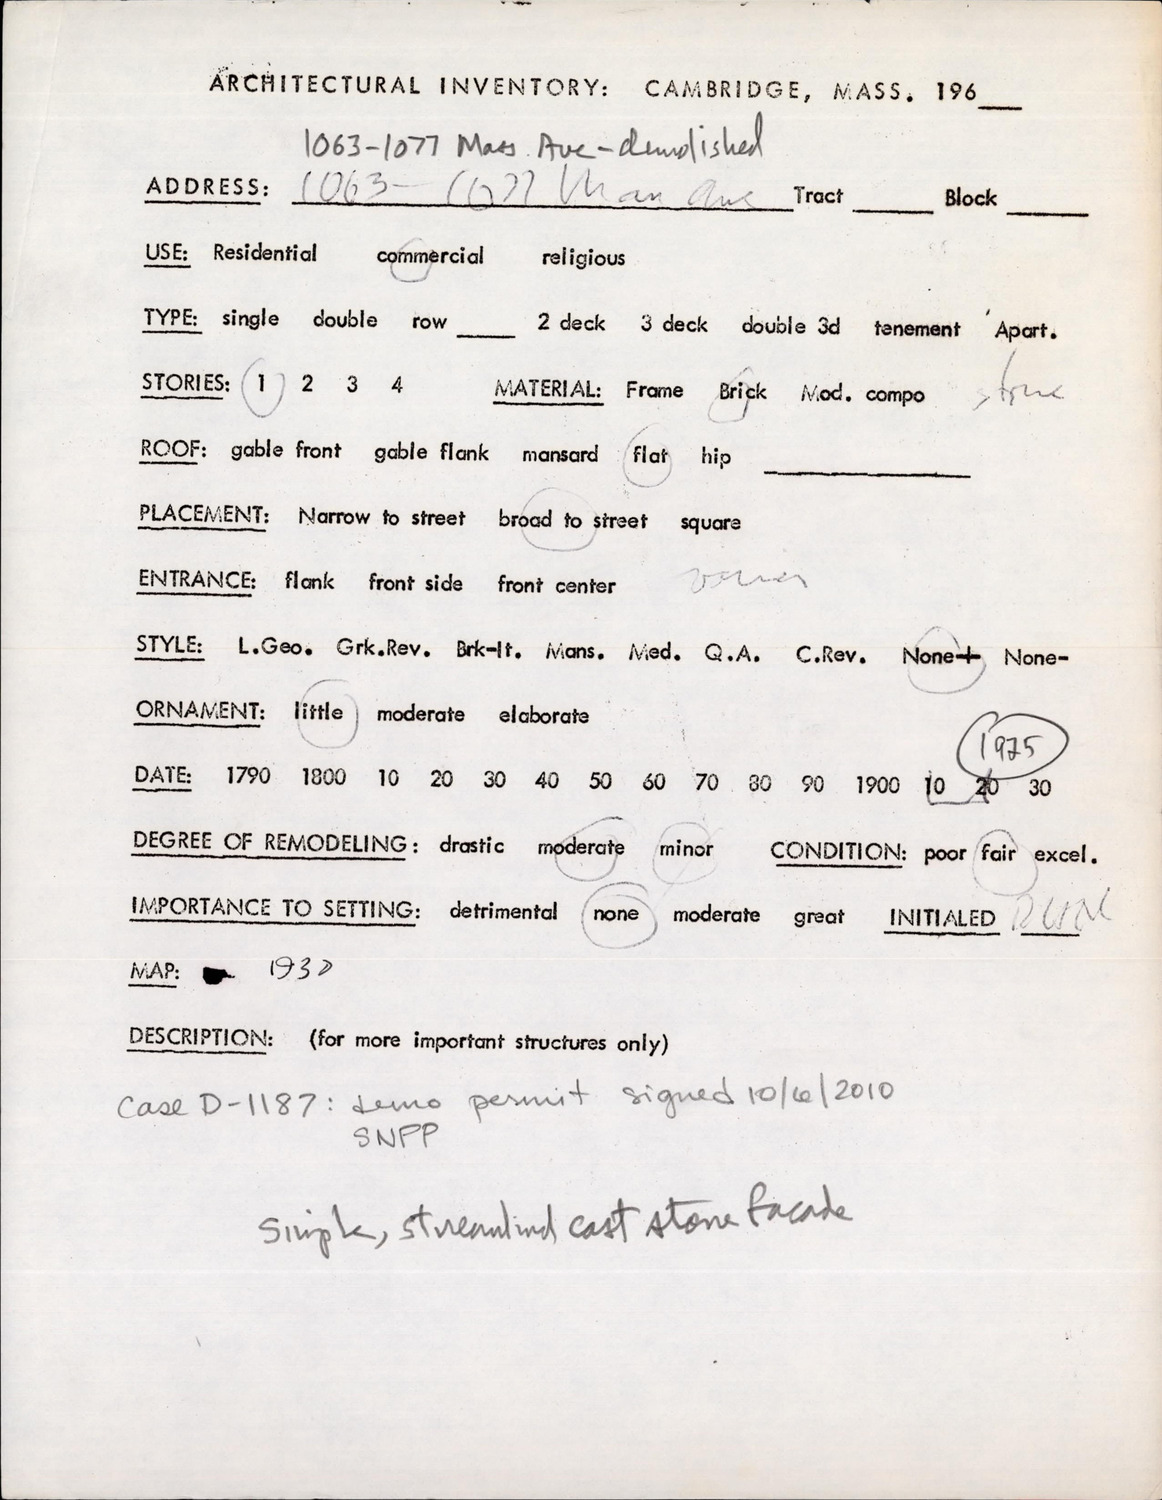 ARCHITECTURAL INVENTORY: CAMBRIDGE, MASS. 196___
1063-1077 Mass. Ave - demolished
ADDRESS: 1063-1077 Mass Ave Tract ______ Block ______
USE: Residential commercial religious
TYPE: single double row ____ 2 deck 3 deck double 3d tenement Apart.
STORIES: 1 2 3 4 MATERIAL: Frame Brick Mod. compo stone
ROOF: gable front gable flank mansard flat hip ____________
PLACEMENT: Narrow to street broad to street square
ENTRANCE: flank front side front center various
STYLE: L.Geo. Grk.Rev. Brk-It. Mans. Med. Q.A. C.Rev. None+ None-
ORNAMENT: little moderate elaborate
1925
DATE: 1790 1800 10 20 30 40 50 60 70 80 90 1900 10 20 30
DEGREE OF REMODELING: drastic moderate minor CONDITION: poor fair excel.
IMPORTANCE TO SETTING: detrimental none moderate great INITIALED
MAP: 1930
DESCRIPTION: (for more important structures only)
Case D-1187: demo permit signed 10/6/2010
SNPP
Simple, streamlined cast stone facade